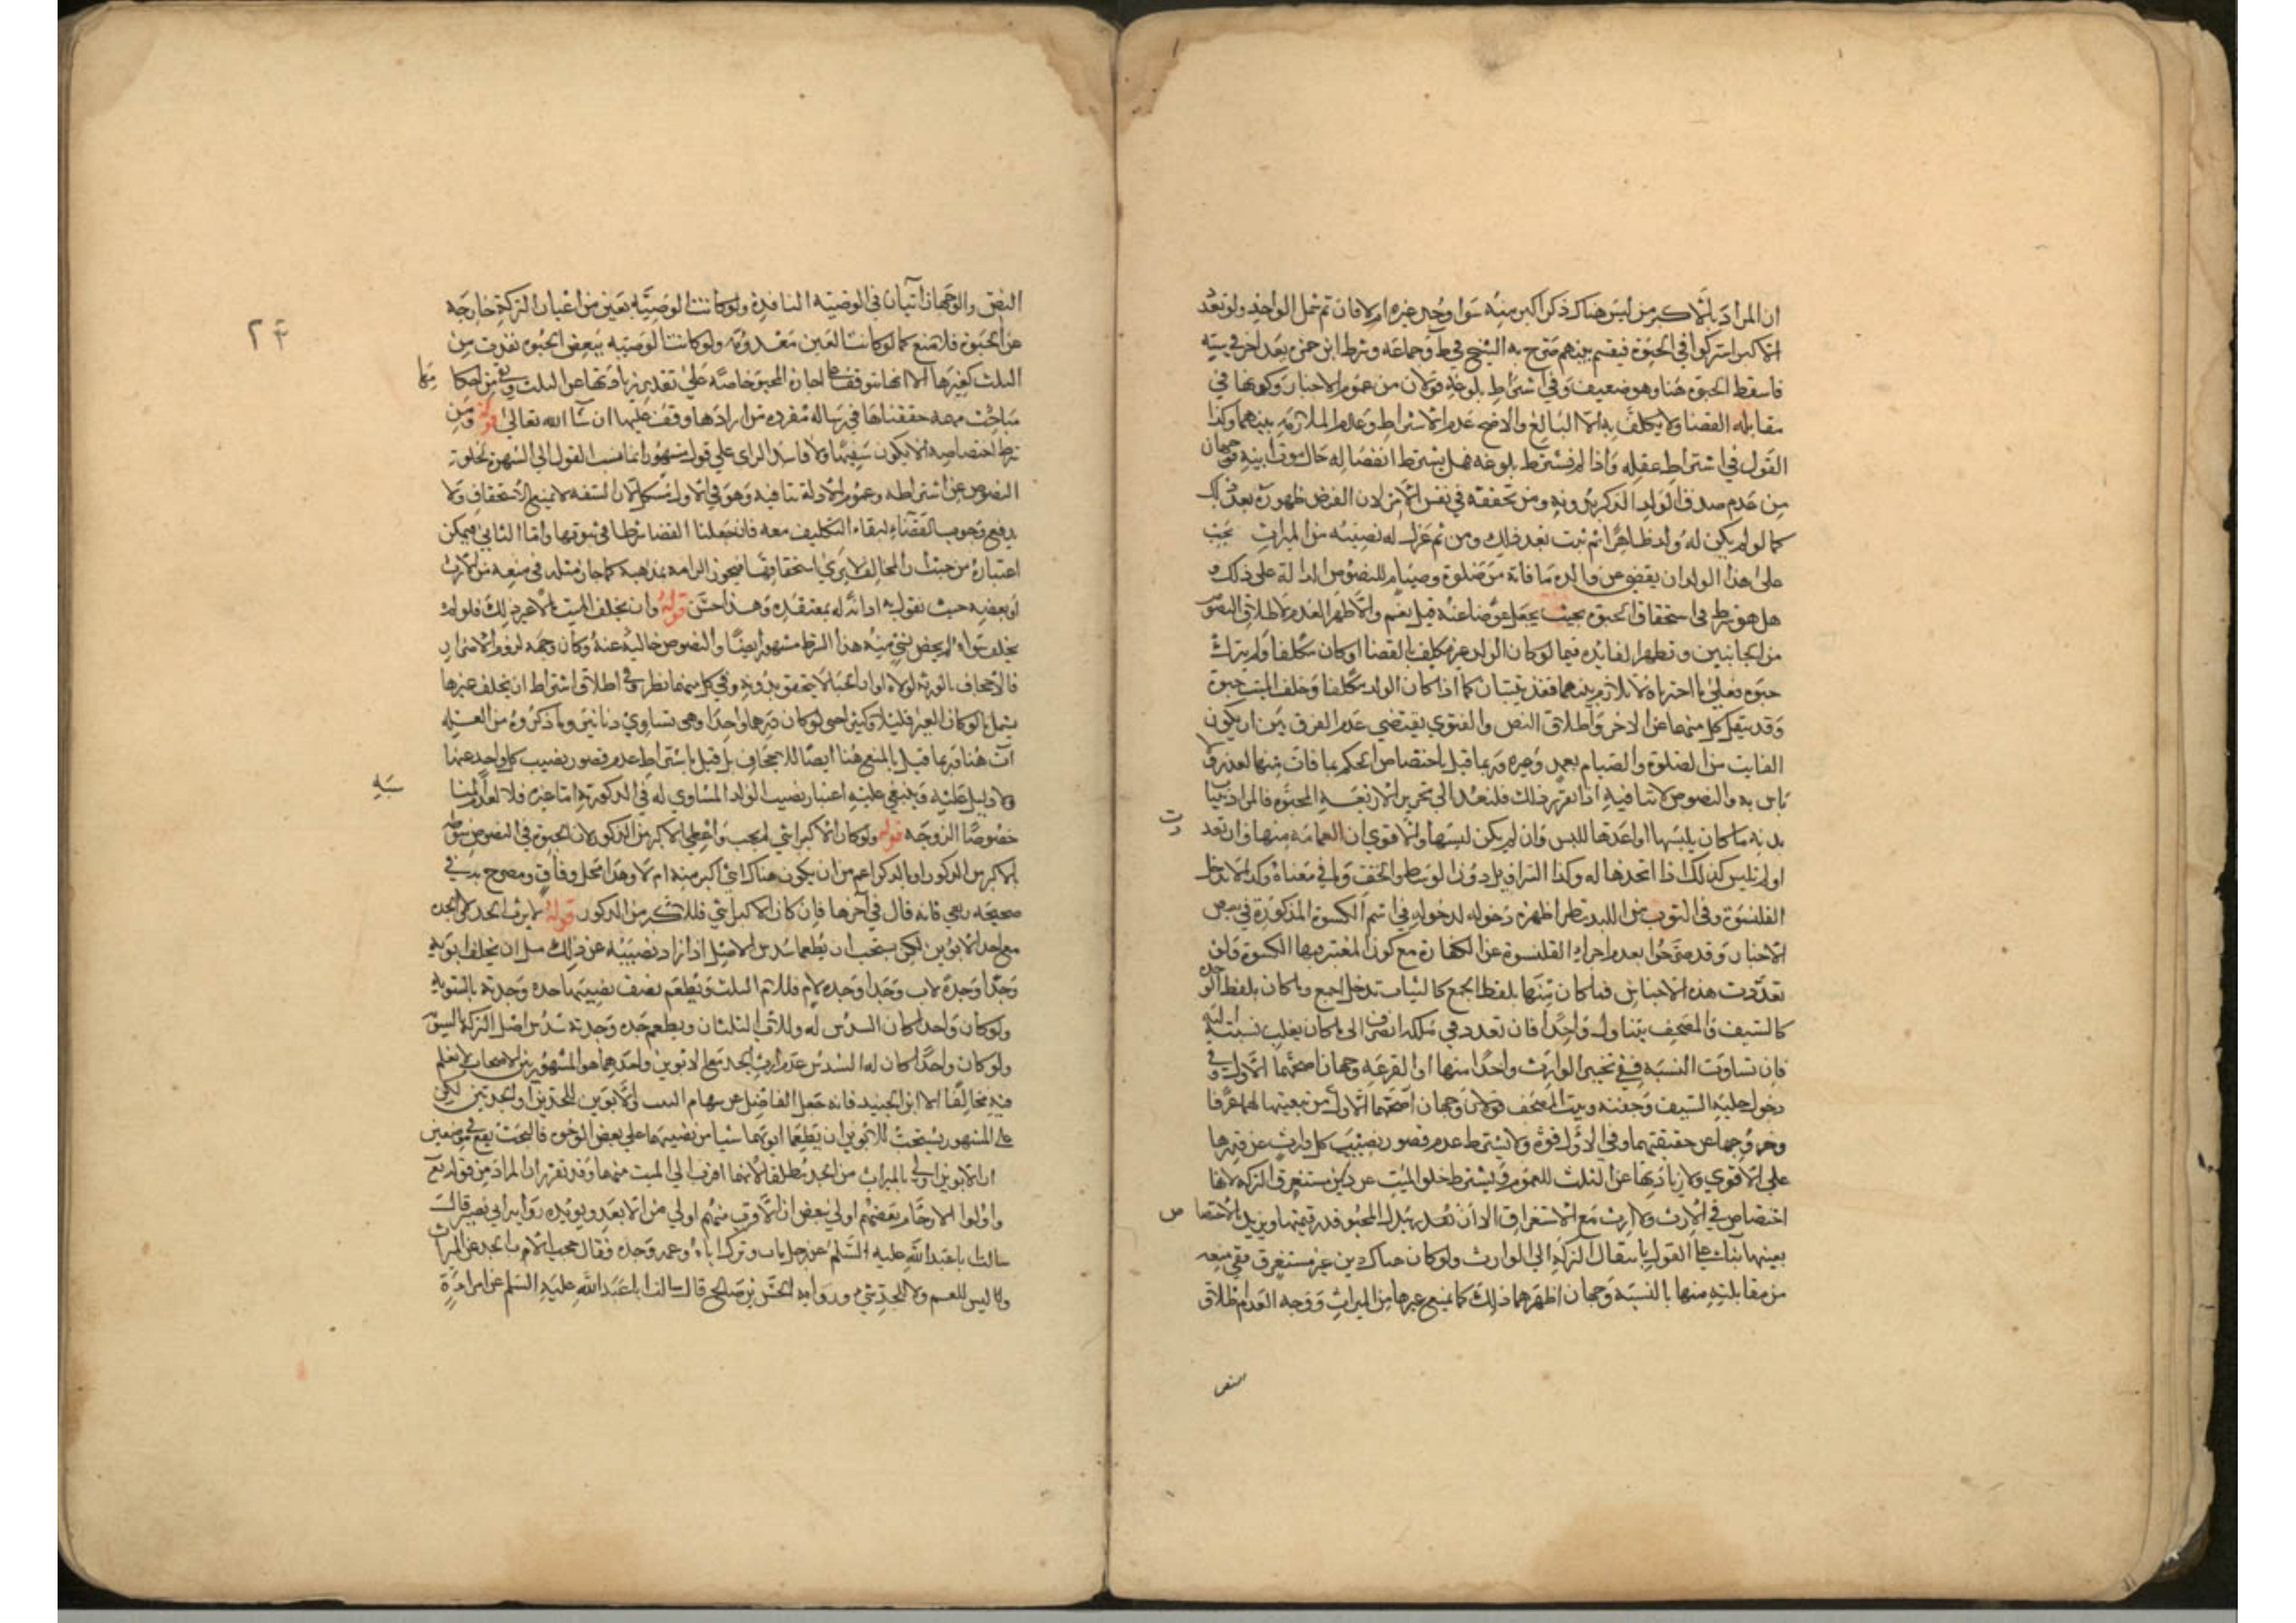 ان المراد بالاكبر من ليس هناك ذكر اكبر منه سوا وجد غيره ام لا فان تم تحمل الواحد ولو تعدد
الاكبر اشتركوا في الحبوة فيقسم بينهم صرح به الشيخ في ط وجماعه وشرط ابن حمزه بعد اخر في سنه
فاسقط الحبوة هنا وهو ضعيف وفي اشتراط بلوغه قولان من عموم الاخبار وكونها في
مقابله القضا ولا يكلف به الا البالغ والاصح عدم الاشتراط وعدم الملازمه بينهما وكذا
القول في اشتراط عقله واذا لم نشترط بلوغه فهل يشترط انفصاله حال موت ابيه وجهان
من عدم صدق الولد الذكر بدونه ومن تحققه في نفس الامر اذ الفرض ظهوره بعد ذلك
كما لو لم يكن له ولد ظاهرا ثم ثبت بعد ذلك ومن ثم عزل له نصيبه من الميراث يجب
على هذا الولد ان يقضي عن والده ما فاته من صلوة وصيام للنصوص الدالة على ذلك و
هل هو شرط في استحقاق الحبوة بحيث يجعل عوضا عنه قيل نعم والاظهر العدم لاطلاق النصوص
من الجانبين وتظهر الفايده فيما لو كان الولد غير مكلف بالقضا او كان مكلفا ولم يترك
حبوه فعلى ما اخترناه لا تلازم بينهما فقد يثبتان كما اذا كان الولد مكلفا وخلف الميت حبوة
وقد ينفك كل منهما عن الاخر واطلاق النص والفتوي يقتضي عدم الفرق بين ان يكون
الفايت من الصلوة والصيام بعمد وغيره وربما قيل باختصاص الحكم بما فات منها لعذر ولا
باس به والنصوص لا تنافيه اذا تقرر ذلك فلنعد الى تحرير الاربعه المحبوه فالمراد بثياب
بدنه ما كان يلبسها او اعدها للبس وان لم يكن لبسها والاقوي ان العمامه منها وان تعددت
او لم تلبس كذلك اذا اتخذها له وكذا السراويل دون الوسط والخف وما في معناه وكذا لا تدخل
القلنسوة وفي الثوب من اللبد نظر اظهره دخوله لدخوله في اسم الكسوة المذكورة في بعض
الاخبار وقد صرحوا بعدم اجزاء القلنسوة عن الكفارة مع كون المعتبر فيها الكسوة ولو
تعددت هذه الاجناس فما كان منها بلفظ الجمع كالثياب تدخل اجمع وما كان بلفظ الوحدة
كالسيف والمصحف يتناول واحدا فان تعدد في ملكه انصرف الى ما كان يغلب نسبته اليه
فان تساوت النسبه ففي تخيير الوارث واحدا منها او القرعه وجهان اصحهما الاول وفي
دخول حلية السيف وجفنه وبيت المصحف قولان وجهان اصحهما الاول من تبعيتها لهما عرفا
وخروجها عن حقيقتهما وفي الاول قوة ولا يشترط عدم قصور نصيب كل وارث عن قدرها
على الاقوي ولا زيادتها عن الثلث للعموم ويشترط خلو الميت عن دين مستغرق التركه لانها
اختصاص في الارث ولا ارث مع الاستغراق الا ان يفد يبذل المحبو قدر قيمتها ويزيد الاختصاص
بعينها بناء على القول بانتقال التركه الى الوارث ولو كان هناك دين غير مستغرق ففي منعه
من مقابلته منها بالنسبه وجهان اظهرهما ذلك كما يمنع غيرها من الميراث ووجه العدم اطلاق
النص
٢٤
النص والوجهان اتيان في الوصيه النافذة ولو كانت الوصيه بعين من اعيان التركة خارجه
عن الحبوة فلا منع كما لو كانت العين معدومة ولو كانت الوصيه ببعض الحبوه نفذت من
الثلث كغيرها الا انها تتوقف على اجازه المحبو خاصه على تقدير زيادتها عن الثلث وبقي من احكامها
مباحث مهمه حققناها في رساله مفرده من ارادها وقف عليها ان شا الله تعالى قوله ومن
شرط اختصاصه الا يكون سفيها ولا فاسد الراى على قول مشهور انما نسب القول الى الشهره لخلو
النصوص عن اشتراطه وعموم الادلة تنافيه وهو في الاول مشكل لان السفه لا يمنع الاستحقاق ولا
يدفع وجوب القضاء لبقاء التكليف معه فان جعلنا القضا شرطا في ثبوتها واما الثاني فيمكن
اعتباره من حيث ان المخالف لا يرى استحقاقها فيجوز الزامه بمذهبه كما جاز مثله في منعه من الارث
او بعضه حيث نقول به ادانة له بمعتقده وهذا حسن قوله وان يخلف الميت مالا غير ذلك فلو لم
يخلف سواه لم يخص بشي منه هذا الشرط مشهور ايضا والنصوص خاليه عنه وكان وجهه لزوم الاضرار
والاجحاف بالورثه لولاه او ان الحبا لا يتحقق بدونه وفي كل منهما نظر وفي اطلاق اشتراط ان يخلف غيرها
يشمل ما لو كان الغير قليلا وكثيرا حتى لو كان درهما واحدا وهي تساوي دنانير وما ذكروه من العله
ات هنا فربما قيل بالمنع هنا ايضا للاجحاف بل قيل باشتراط عدم قصور نصيب كل واحد عنها
ولا دليل عليه وينبغي عليه اعتبار نصيب الولد المساوي له في الذكورية اما غيره فلا لعدم المناسبه
خصوصا الزوجه قوله ولو كان الاكبر انثى لم تحب واعطي الاكبر من الذكور لان الحبوة في النصوص منوطه
بالاكبر من الذكور او بالذكر اعم من ان يكون هناك انثى اكبر منه ام لا وهذا محل وفاق ومصرح به في
صحيحه ربعي فانه قال في اخرها فان كان الاكبر انثى فللاكبر من الذكور قوله لا يرث الجد ولا الجده
مع احد الابوين لكن يستحب ان يطعما سدس الاصل اذا زاد نصيبه عن ذلك مثل ان يخلف ابويه
وجدا وجدة لاب وجدا وجده لام فللام الثلث وتطعم نصف نصيبها جده وجدته بالسويه
ولو كان واحدا كان السدس له وللاب الثلثان ويطعم جده وجدته سدس اصل التركة بالسويه
ولو كان واحدا كان له السدس عدم ارث الجد مع الابوين واحدهما هو المشهور بين الاصحاب لا نعلم
فيه مخالفا الا ابن الجنيد فانه جعل الفاضل عن سهام البنت والابوين للجدين او الجدتين لكن
على المشهور يستحب للابوين ان يطعما ابويهما شيا من نصيبهما على بعض الوجوه فالبحث يقع في موضعين
ا ان الابوين اولى بالميراث من الجد مطلقا لانهما اقرب الى الميت منهما وقد تقرر ان المراد من قوله تع
واولوا الارحام بعضهم اولي ببعض ان الاقرب منهم اولي من الابعد ويؤيده رواية ابي بصير قال
سالت ابا عبد الله عليه السلم عن رجل مات وترك اباه وعمه وجده فقال حجب الاب الجد عن الميراث
وليس للعم ولا للجد شي ورواية الحسن بن صالح قال سالت ابا عبد الله عليه السلم عن امراة